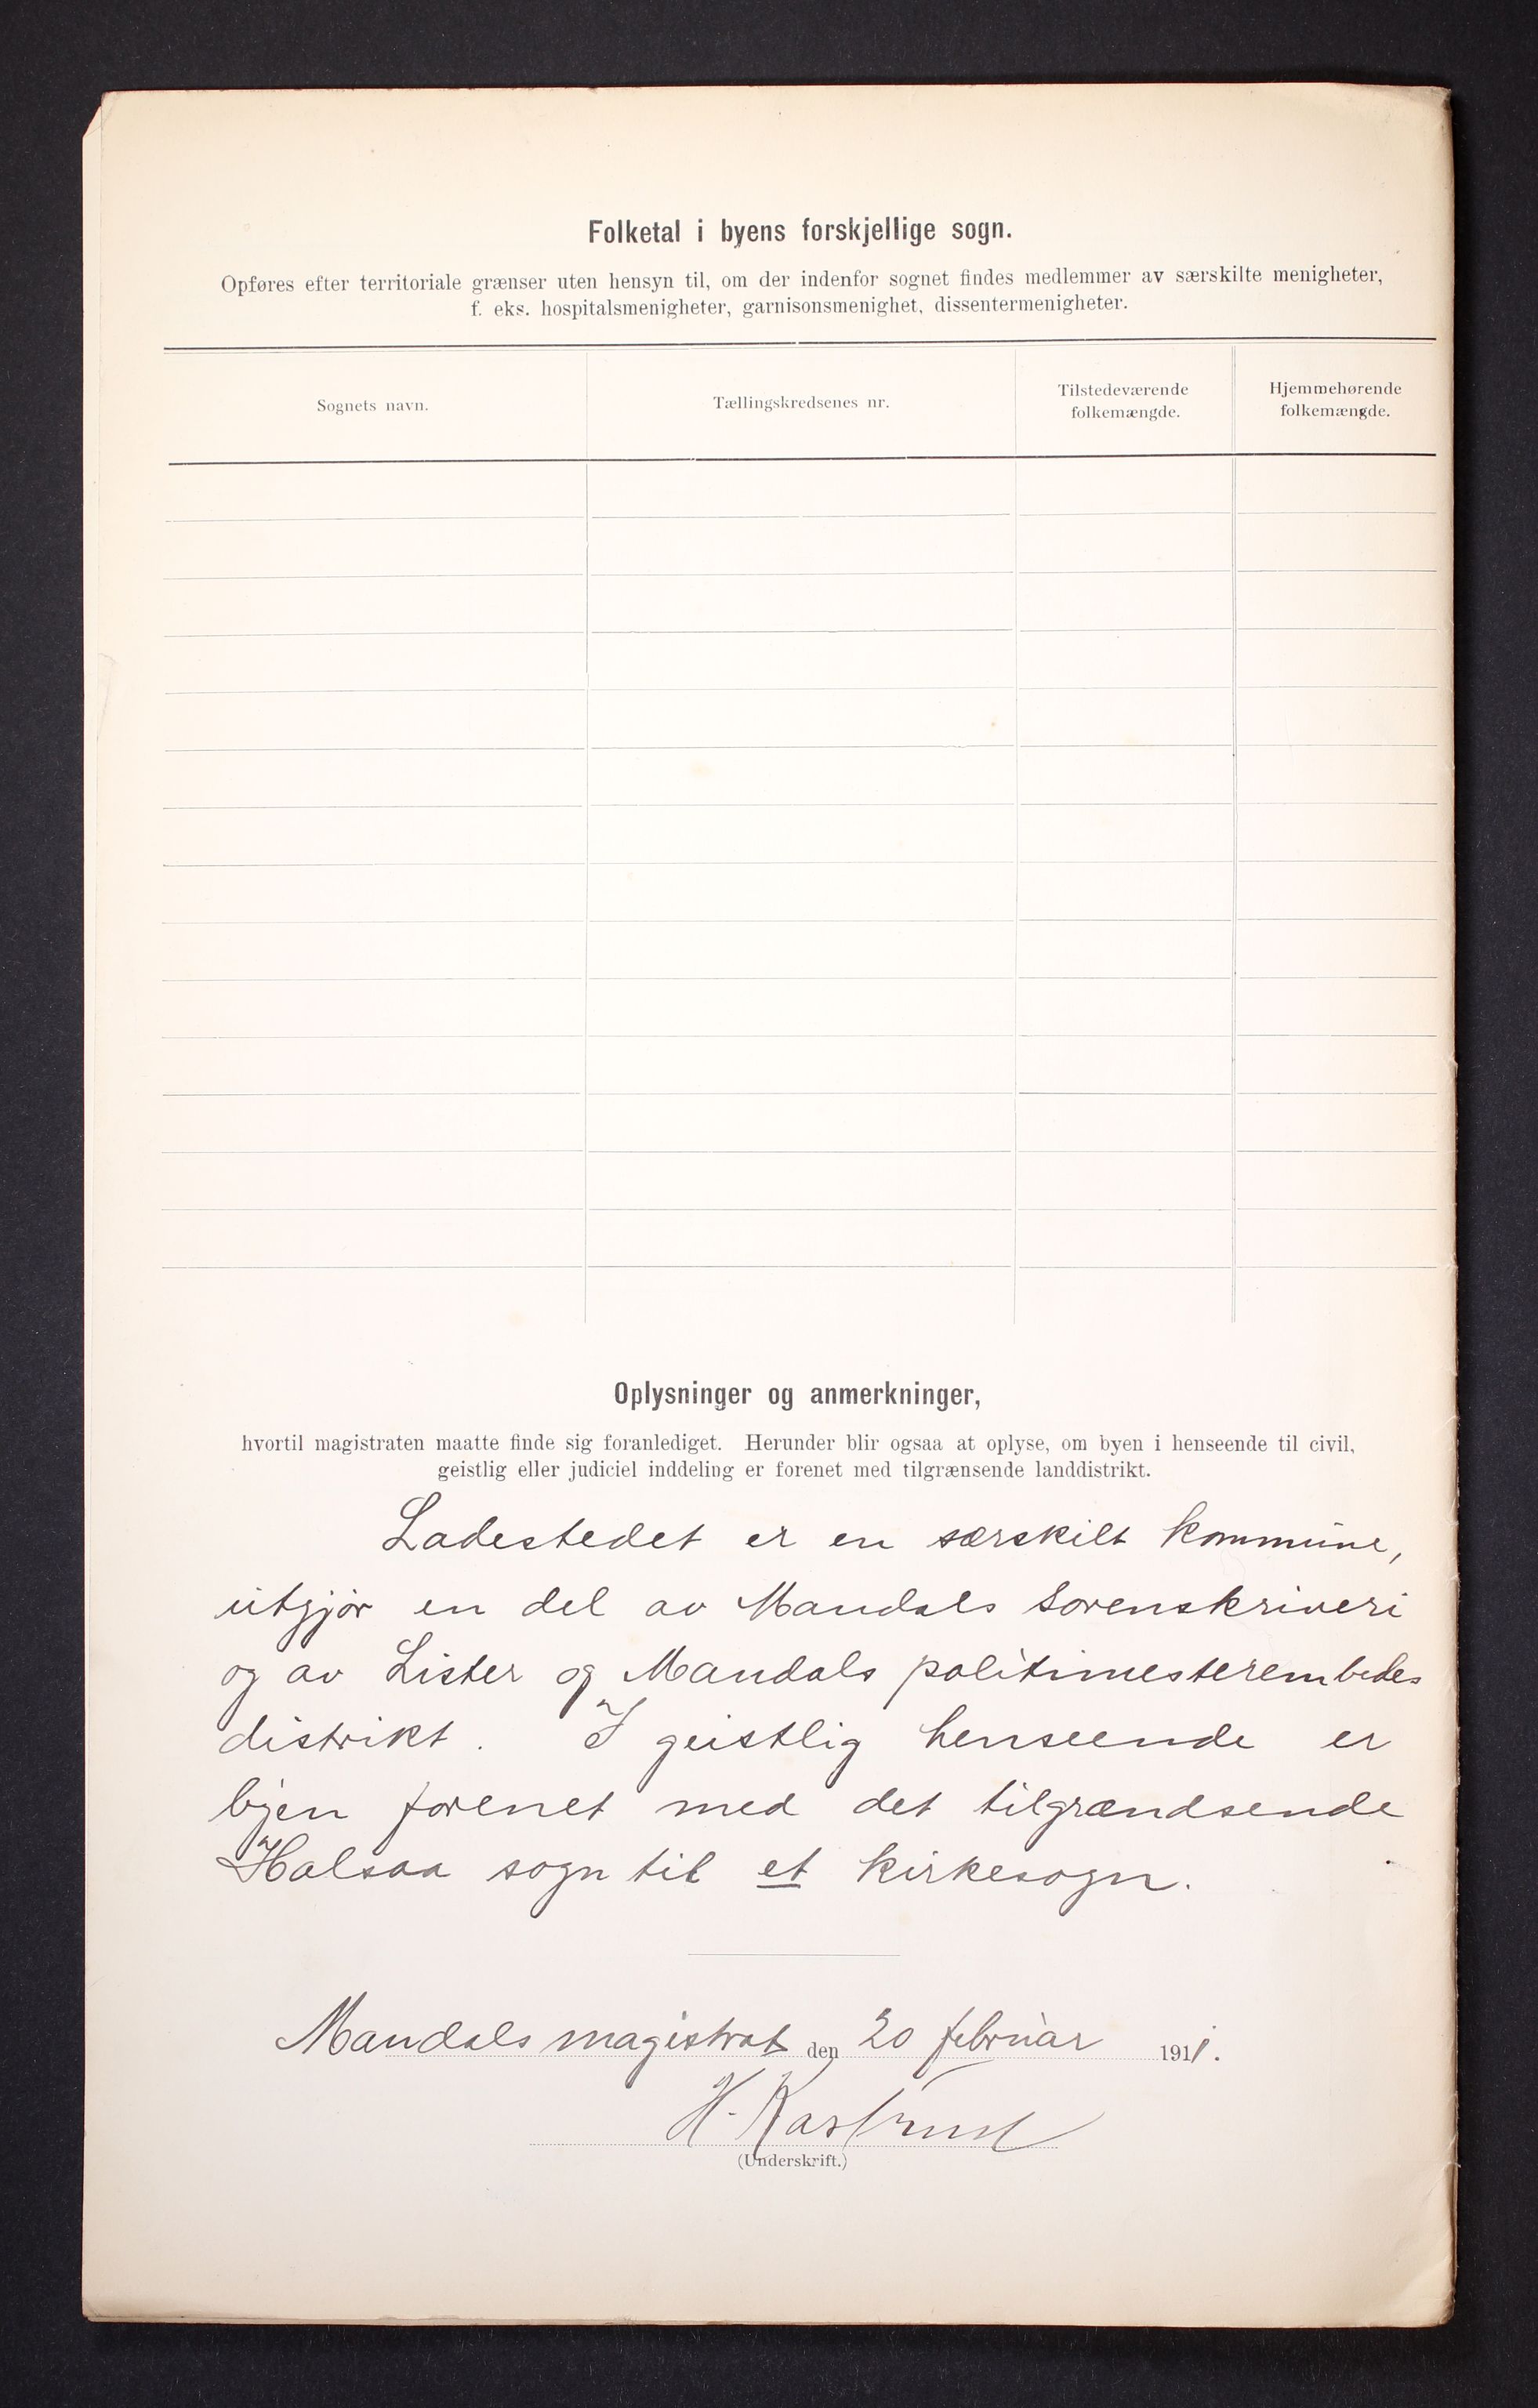 Folketal i byens forskjellige sogn.
Opføres efter territoriale grænser uten hensyn til, om der indenfor sognet findes medlemmer av særskilte menigheter,
f. eks. hospitalsmenigheter, garnisonsmenighet, dissentermenigheter.
Sognets navn.
Tællingskredsenes nr.
Tilstedeværende
folkemængde.
Hjemmehørende
folkemængde.
Oplysninger og anmerkninger,
hvortil magistraten maatte finde sig foranlediget. Herunder blir ogsaa at oplyse, om byen i henseende til civil,
geistlig eller judiciel inddeling er forenet med tilgrænsende landdistrikt.
Ladestedet er en særskilt kommune,
utgjør en del av Mandals sorenskriveri
og av Lister og Mandals politimesterembedes
distrikt. I geistlig henseende er
byen forenet med det tilgrændsende
Halsaa sogn til et kirkesogn.
Mandals magistrat den 20 februar 1911.
H.
(Underskrift.)